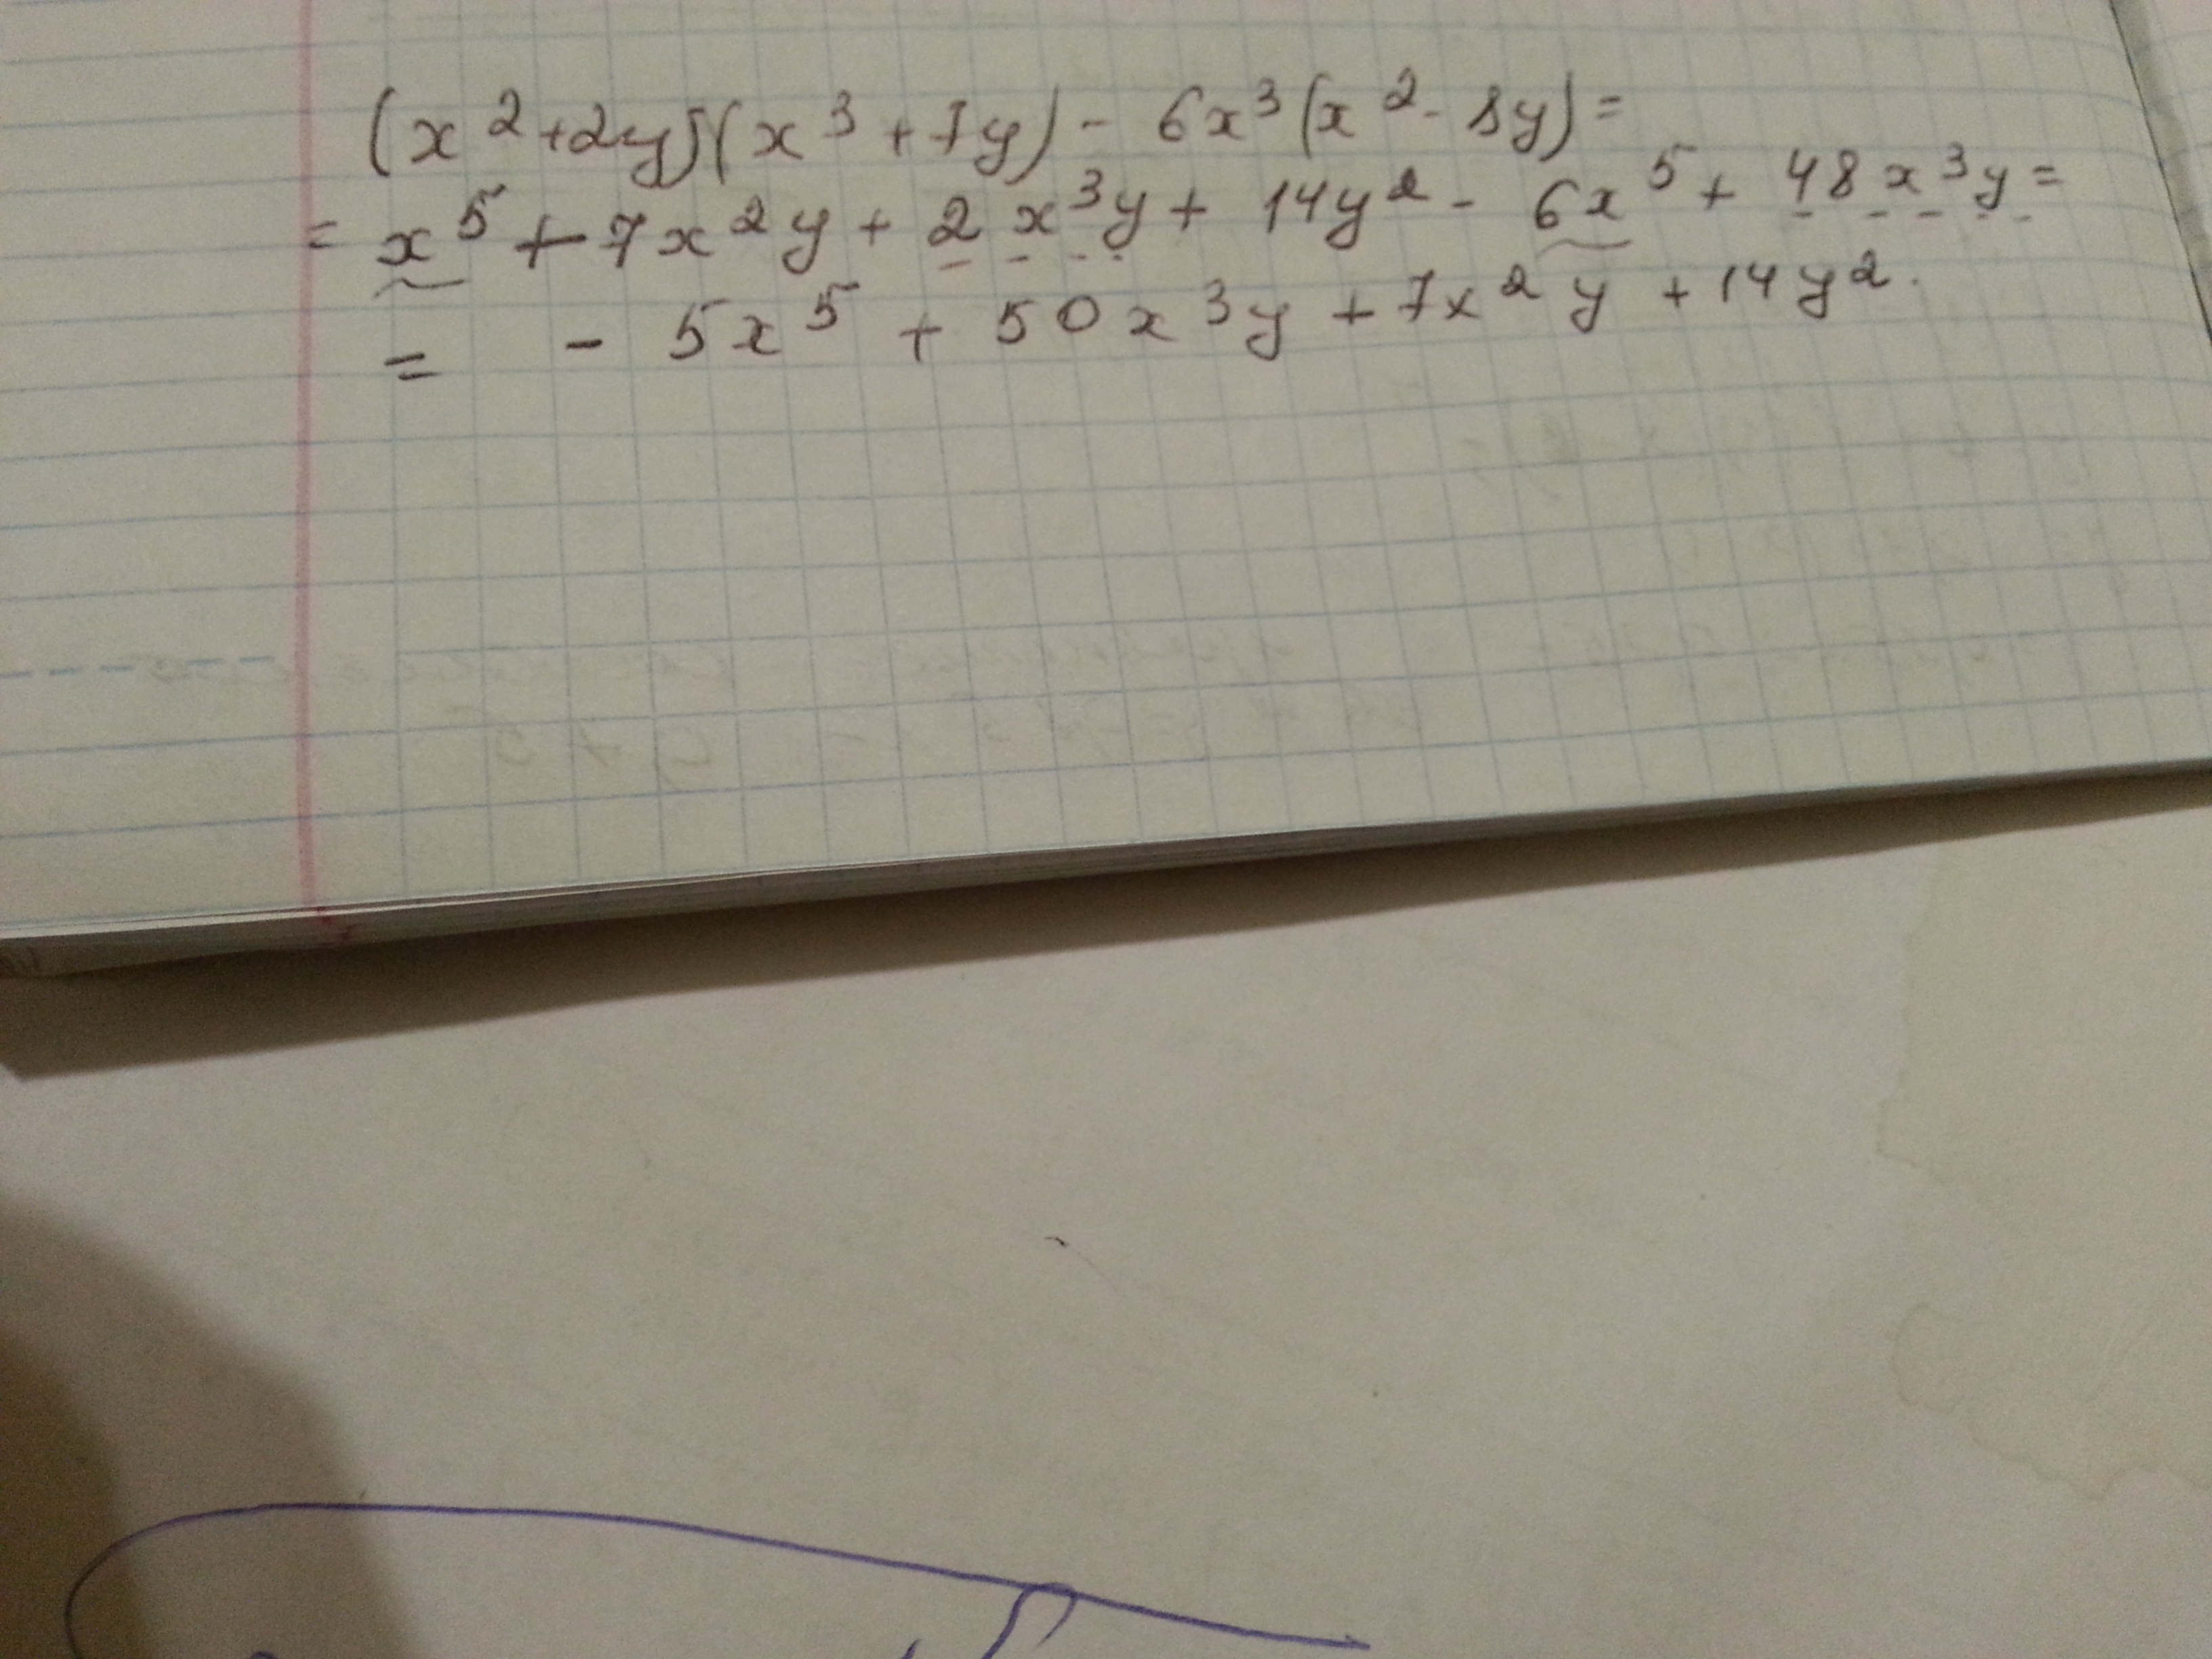 (x²+2y)(x³+7y) - 6x³(x²-8y)=
= x⁵+7x²y+2x³y+14y²-6x⁵+48x³y=
= -5x⁵+50x³y+7x²y+14y².